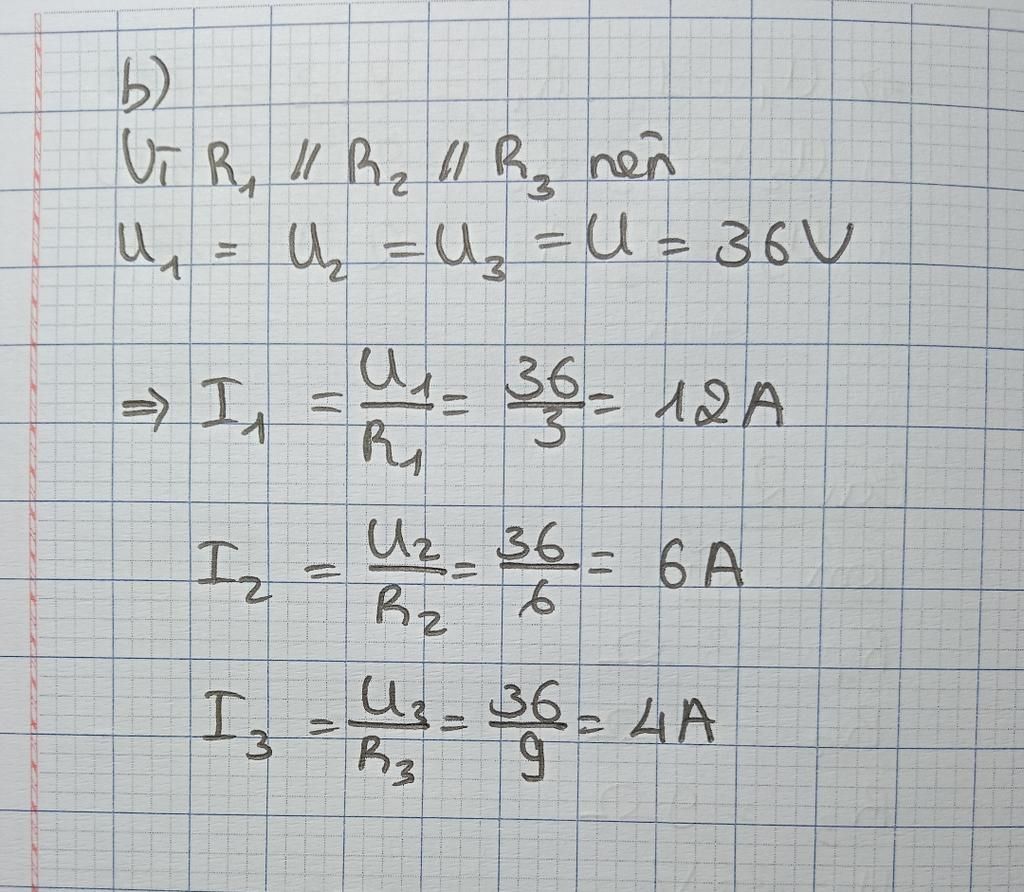 b)
Vì R₁ // R₂ // R₃ nên
U₁ = U₂ = U₃ = U = 36V
⇒ I₁ = U₁/R₁ = 36/3 = 12A
I₂ = U₂/R₂ = 36/6 = 6A
I₃ = U₃/R₃ = 36/9 = 4A